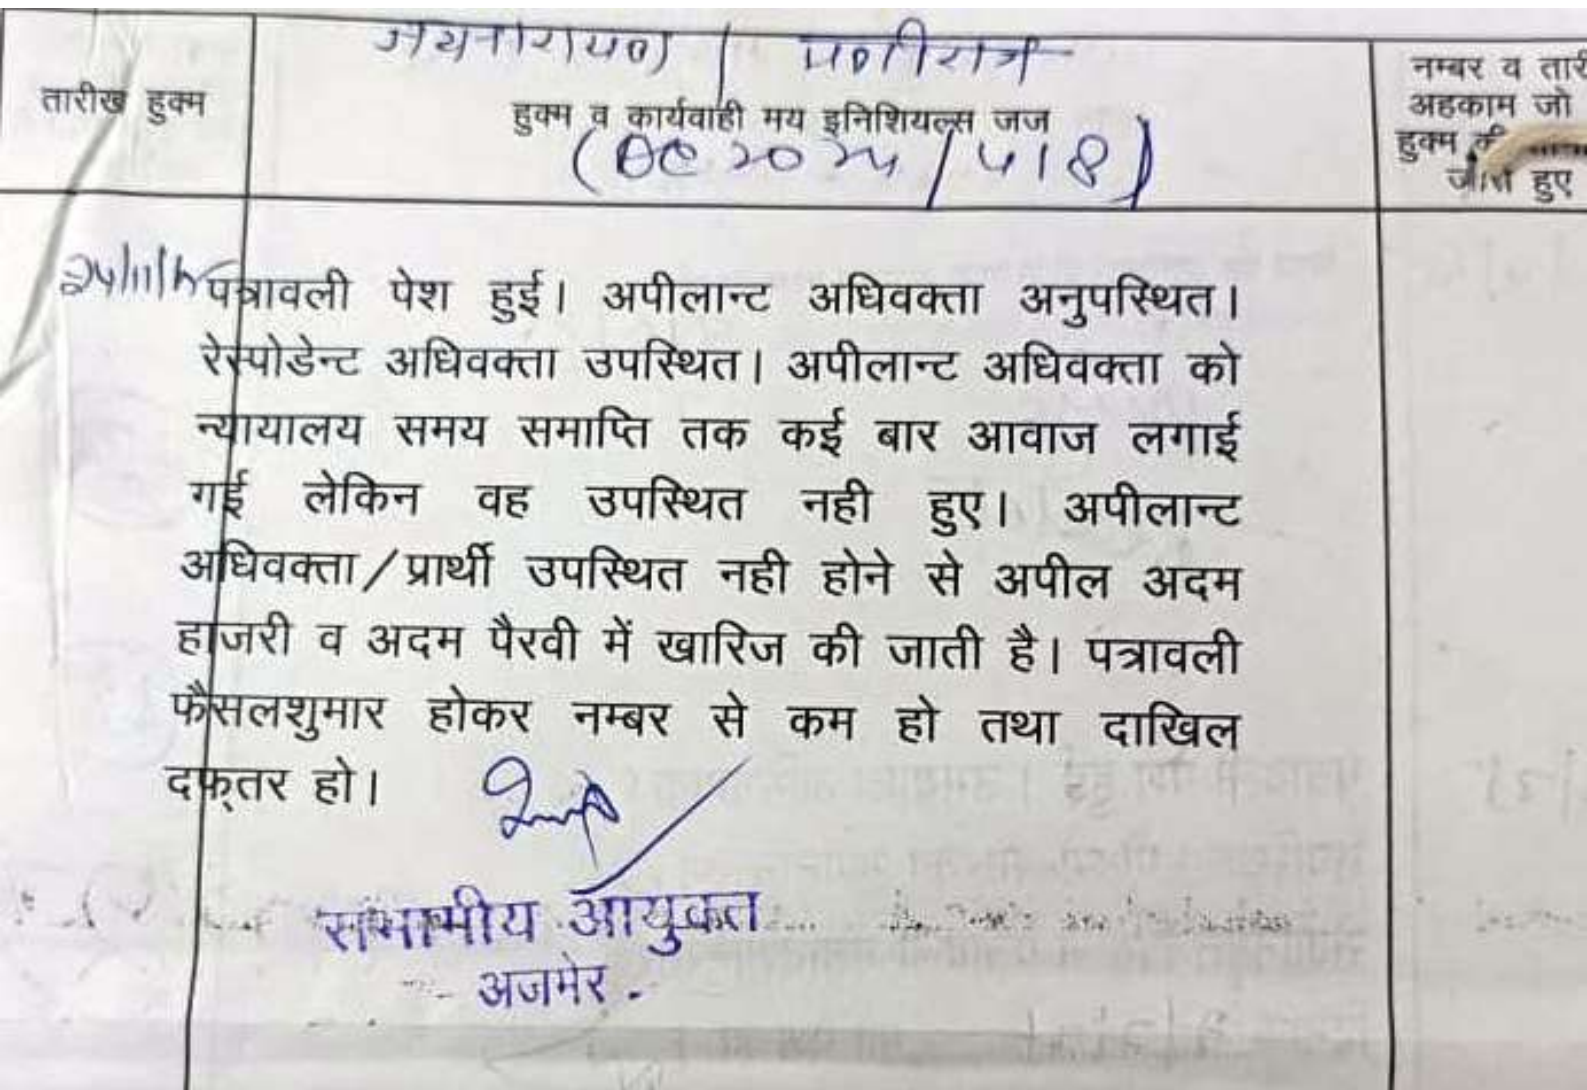 जयनारायण /
तारीख हुक्म
हुक्म व कार्यवाही मय इनिशियल्स जज
नम्बर व तारी
अहकाम जो
हुक्म की
जारी हुए
पत्रावली पेश हुई। अपीलान्ट अधिवक्ता अनुपस्थित।
रेस्पोडेन्ट अधिवक्ता उपस्थित। अपीलान्ट अधिवक्ता को
न्यायालय समय समाप्ति तक कई बार आवाज लगाई
गई लेकिन वह उपस्थित नही हुए। अपीलान्ट
अधिवक्ता/प्रार्थी उपस्थित नही होने से अपील अदम
हाजरी व अदम पैरवी में खारिज की जाती है। पत्रावली
फैसलशुमार होकर नम्बर से कम हो तथा दाखिल
दफ्तर हो।
संभागीय आयुक्त
अजमेर